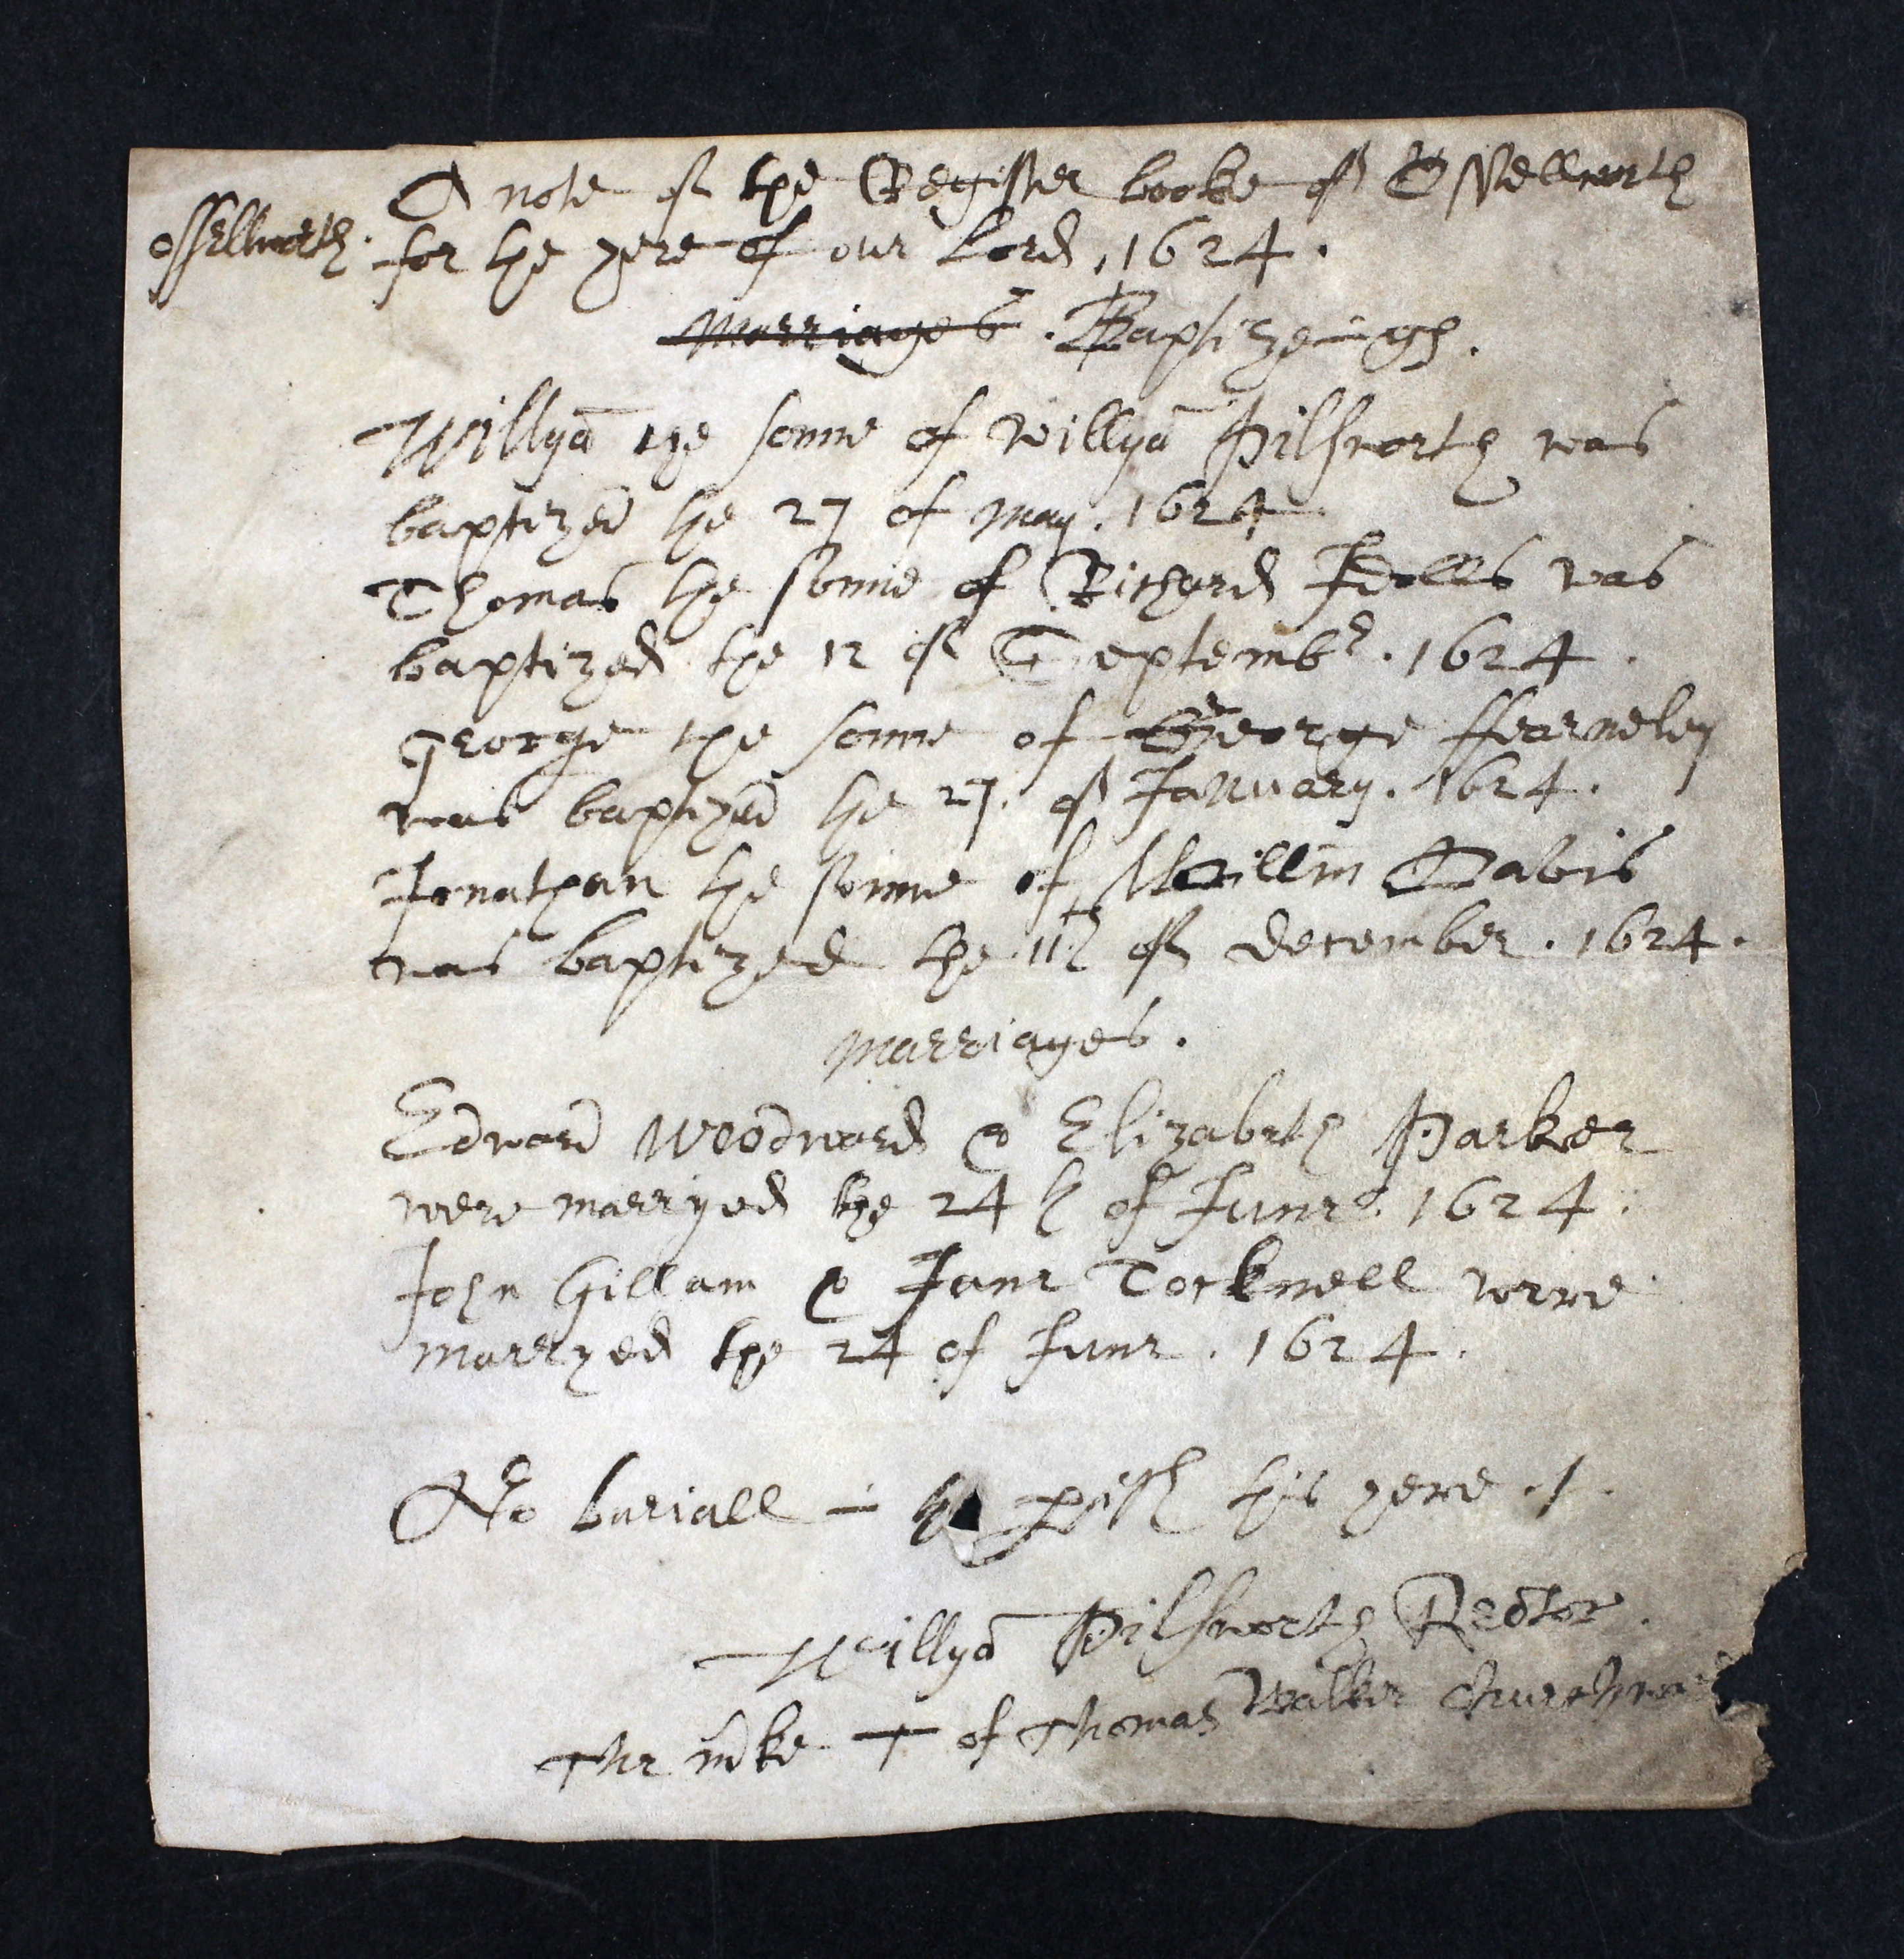 A note of the Register booke of Ossellworth
ossellworth. for the yere of our Lord, 1624.
Marriages. Baptizeings.
Willyā the sonne of willyā Pilsworth was
baptized the 27 of may. 1624
Thomas the sonne of Richard was
baptized the 12 of Septembr. 1624.
George the sonne of George ffearneley
was baptized the 27. of January. 1624.
Jonathan the sonne of Davis
was baptized the 11th of december. 1624.
marriages.
Edward Woodward & Elizabeth Parker
were marryed the 24th of June. 1624.
John Gillam & Jane Tocknell were
marryed the 24 of June. 1624.
No buriall in pish this yere.
Willyā Pilsworth Rector.
The mke T of Thomas Walker Churchward